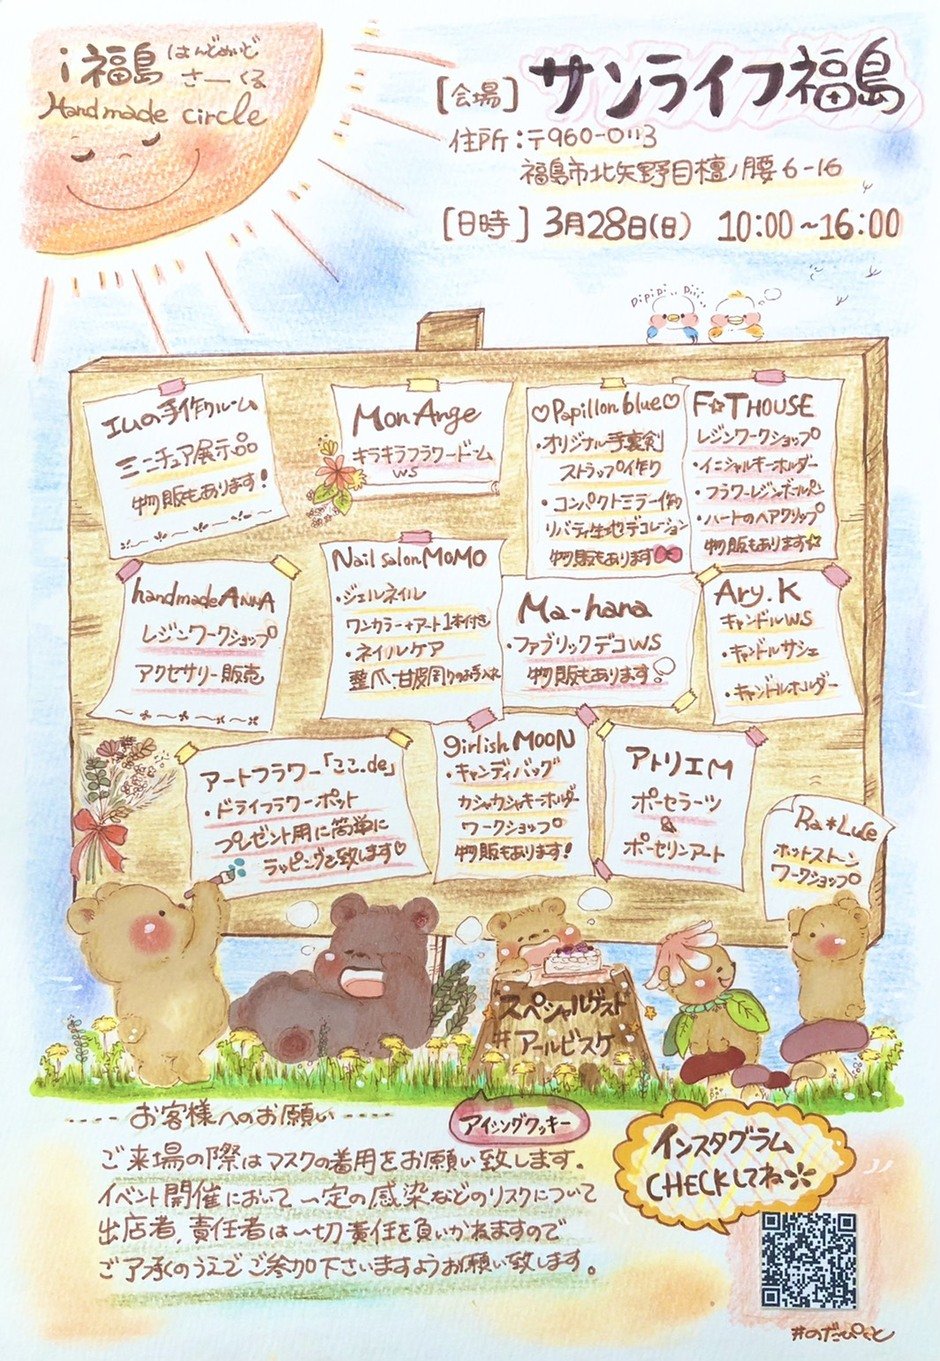 i福島 はんどめいど さーくる
Handmade circle
[会場] サンライフ福島
住所:〒960-0113
福島市北矢野目檀ノ腰6-16
[日時] 3月28日(日) 10:00~16:00
PiPiPi.. Piii...
エムの手作りルーム
ミニチュア展示品
物販もあります!
Mon Ange
キラキラフラワードーム
WS
♡Papillon blue♡
・オリジナル手裏剣
ストラップ作り
・コンパクトミラー作り
リバティ生地デコレーション
物販もあります
F☆T HOUSE
レジンワークショップ
・イニシャルキーホルダー
・フラワーレジンボールペン
・ハートのヘアクリップ
物販もあります☆
handmade ANNA
レジンワークショップ
アクセサリー販売
Nail salon MOMO
・ジェルネイル
ワンカラー+アート1本付き
・ネイルケア
整爪、甘皮周りのお手入れ
Ma-hana
・ファブリックデコWS
物販もあります。
Ary.K
キャンドルWS
・キャンドルサシェ
・キャンドルホルダー
アートフラワー「ここ.de」
・ドライフラワーポット
プレゼント用に簡単に
ラッピング致します♡
girlish MOON
・キャンディバッグ
カシャカシャキーホルダー
ワークショップ
物販もあります!
アトリエM
ポーセラーツ
&
ポーセリンアート
Ra*Lule
ホットストーン
ワークショップ
スペシャルゲスト
#アールビスケ
アイシングクッキー
お客様へのお願い
ご来場の際はマスクの着用をお願い致します。
イベント開催において、一定の感染などのリスクについて
出店者、責任者は一切責任を負いかねますので
ご了承のうえでご参加下さいますようお願い致します。
インスタグラム
CHECKしてね
#のだぴくと